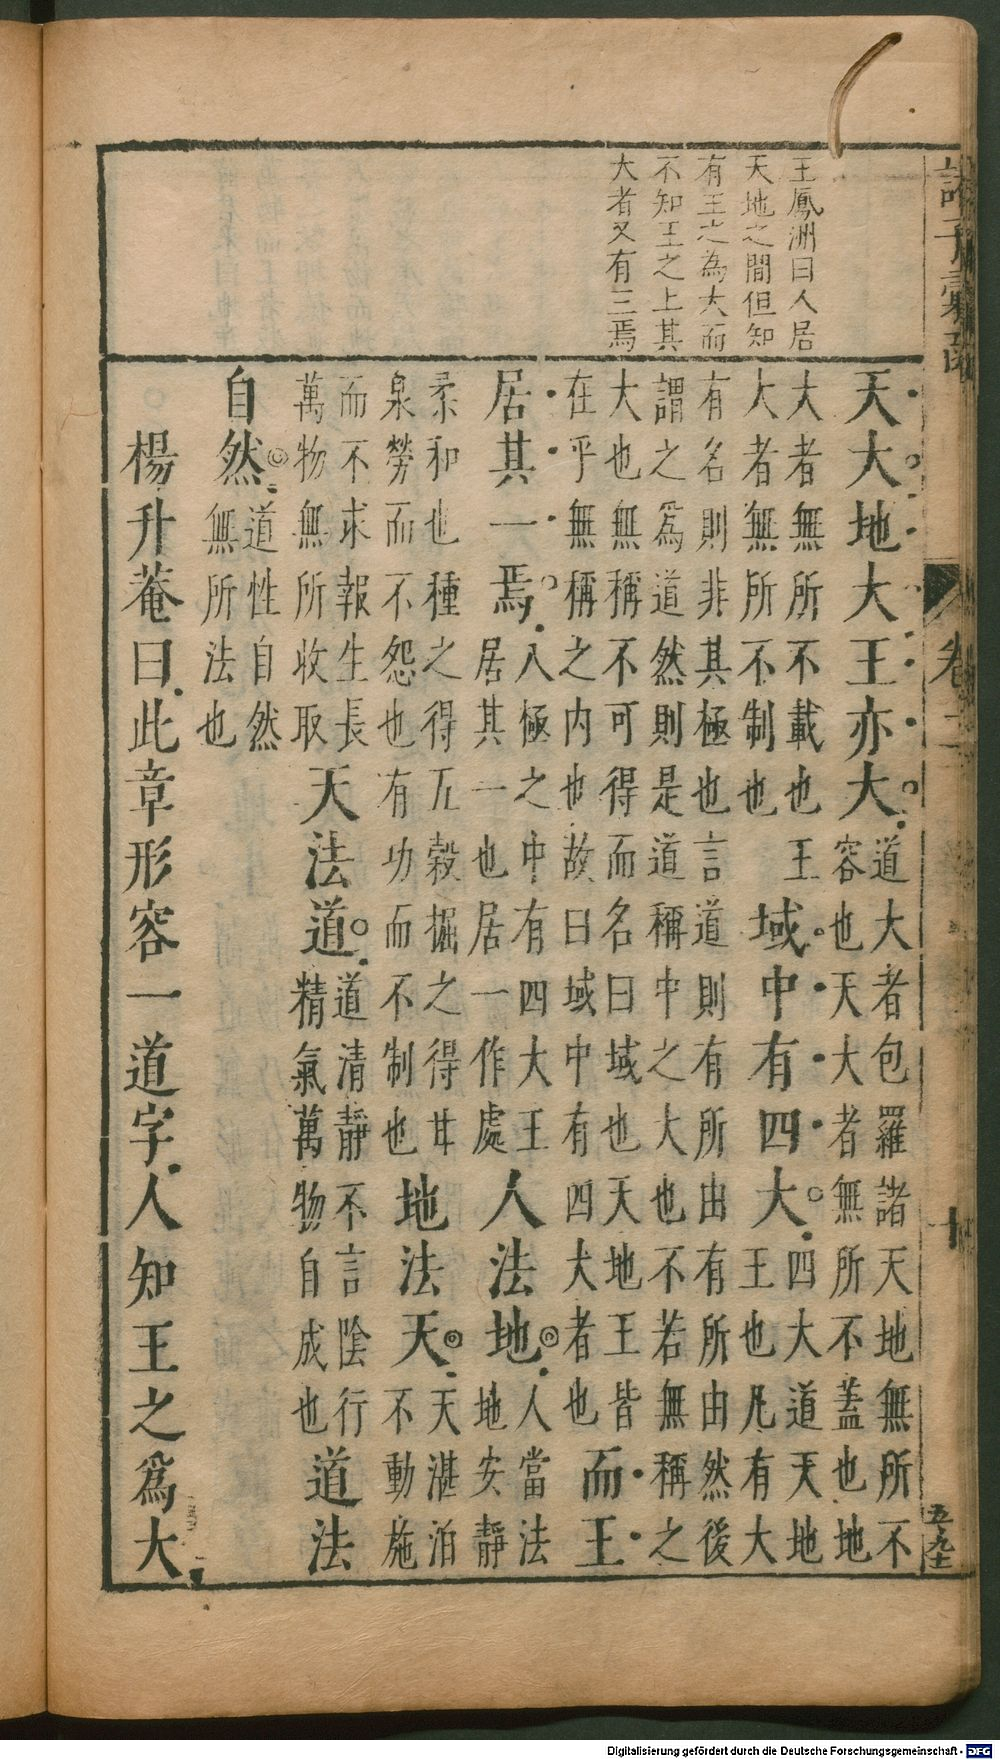 諸子彙函
卷二
十
王鳳洲曰人居
天地之間但知
有王之為大而
不知王之上其
大者又有三焉
天大地大王亦大道大者包羅諸天地無所不
容也天大者無所不蓋也地
大者無所不載也王
大者無所不制也域中有四大四大道天地
王也凡有大
有名則非其極也言道則有所由有所由然後
謂之爲道然則是道稱中之大也不若無稱之
大也無稱不可得而名曰域也天地王皆
在乎無稱之内也故曰域中有四大者也而王
居其一焉八極之中有四大王
居其一也居一作處人法地人當法
地安靜
柔和也種之得五穀掘之得甘
泉勞而不怨也有功而不制也地法天天湛泊
不動施
而不求報生長
萬物無所收取天法道道清靜不言陰行
精氣萬物自成也道法
自然道性自然
無所法也
楊升菴曰此章形容一道字人知王之爲大
Digitalisierung gefördert durch die Deutsche Forschungsgemeinschaft - DFG